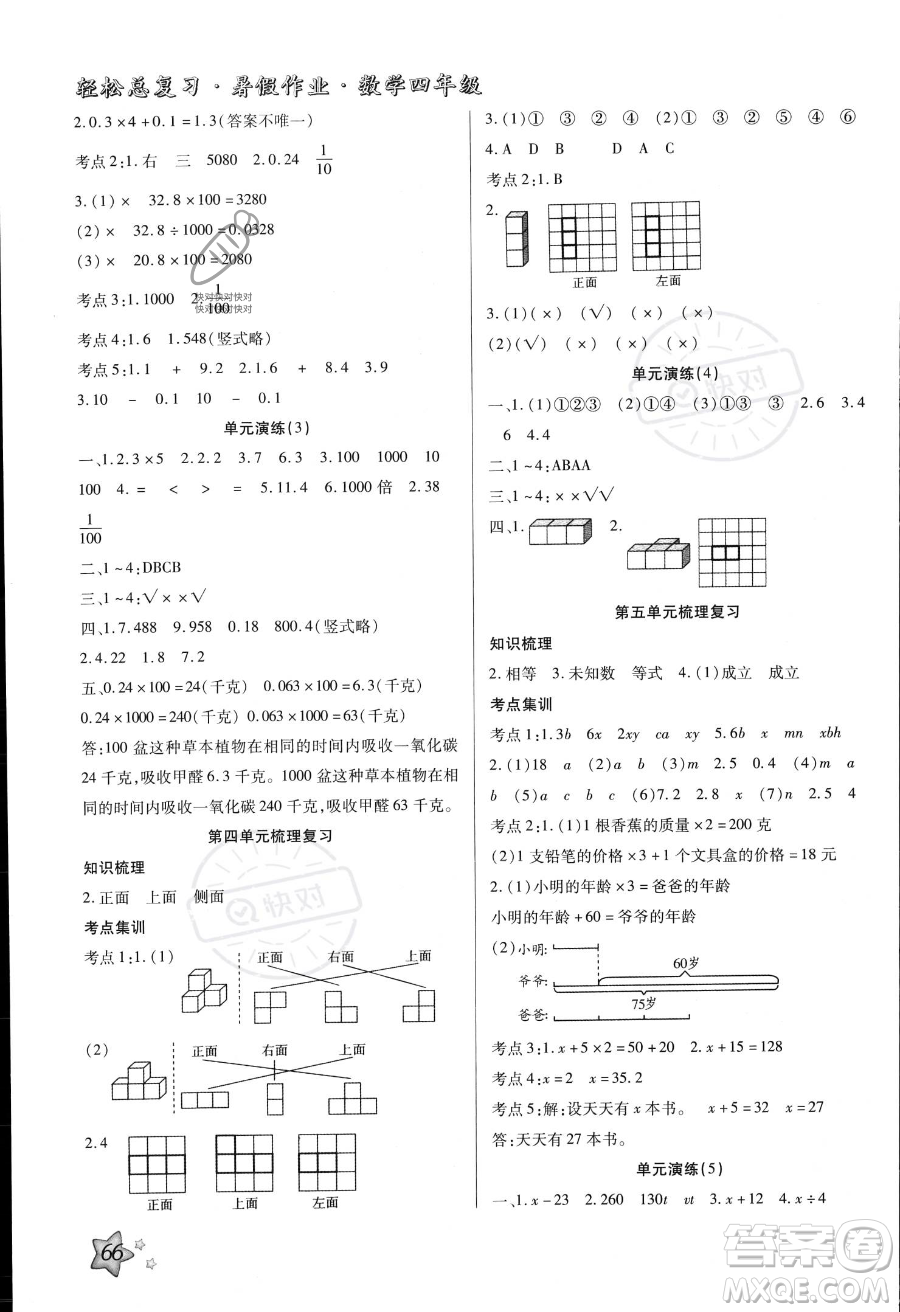 轻松总复习·暑假作业·数学四年级
2.0.3×4+0.1=1.3(答案不唯一)
考点2:1.右 三 5080 2.0.24 1/10
3.(1)× 32.8×100=3280
(2)× 32.8÷1000=0.0328
(3)× 20.8×100=2080
考点3:1.1000 2. 1/100
快对快对快对
快对快对快对
考点4:1.6 1.548(竖式略)
考点5:1.1 + 9.2 2.1.6 + 8.4 3.9
3.10 - 0.1 10 - 0.1
单元演练(3)
一、1.2.3×5 2.2.2 3.7 6.3 3.100 1000 10
100 4.= < > = 5.11.4 6.1000倍 2.38
1/100
二、1~4:DBCB
三、1~4:√××√
四、1.7.488 9.958 0.18 800.4(竖式略)
2.4.22 1.8 7.2
五、0.24×100=24(千克) 0.063×100=6.3(千克)
0.24×1000=240(千克) 0.063×1000=63(千克)
答:100盆这种草本植物在相同的时间内吸收一氧化碳
24千克,吸收甲醛6.3千克。1000盆这种草本植物在相
同的时间内吸收一氧化碳240千克,吸收甲醛63千克。
第四单元梳理复习
知识梳理
2.正面 上面 侧面
考点集训
考点1:1.(1)
正面 右面 上面
(2)
正面 右面 上面
2.4
正面 上面 左面
66
3.(1)① ③ ② ④ (2)② ① ③ ④ ⑤ ⑥
4.A D B A D C
考点2:1.B
2.
正面 左面
3.(1)(×) (√) (×) (×)
(2)(√) (×) (×) (×)
单元演练(4)
一、1.(1)①②③ (2)①④ (3)①③ ③ 2.6 3.4
6 4.4
二、1~4:ABAA
三、1~4:××√√
四、1. 2.
第五单元梳理复习
知识梳理
2.相等 3.未知数 等式 4.(1)成立 成立
考点集训
考点1:1.3b 6x 2xy ca xy 5.6b mn xbh
2.(1)18 a (2)b a (3)c b c (4)a
b (5)a b (6)4 9.8 x (7)x 2.5 4
考点2:1.(1)1根香蕉的质量×2=200克
(2)1支铅笔的价格×3+1个文具盒的价格=18元
2.(1)小明的年龄×3=爸爸的年龄
小明的年龄+60=爷爷的年龄
(2)小明:
60岁
爷爷:
75岁
爸爸:
考点3:1.x+5×2=50+20 2.x+15=128
考点4:x=2 x=35.2
考点5:解:设天天有x本书。 x+5=32 x=27
答:天天有27本书。
单元演练(5)
一、1.x-23 2.260 130t vt 3.x+12 4.x÷4
快对
快对
答案圈
MXQE.COM